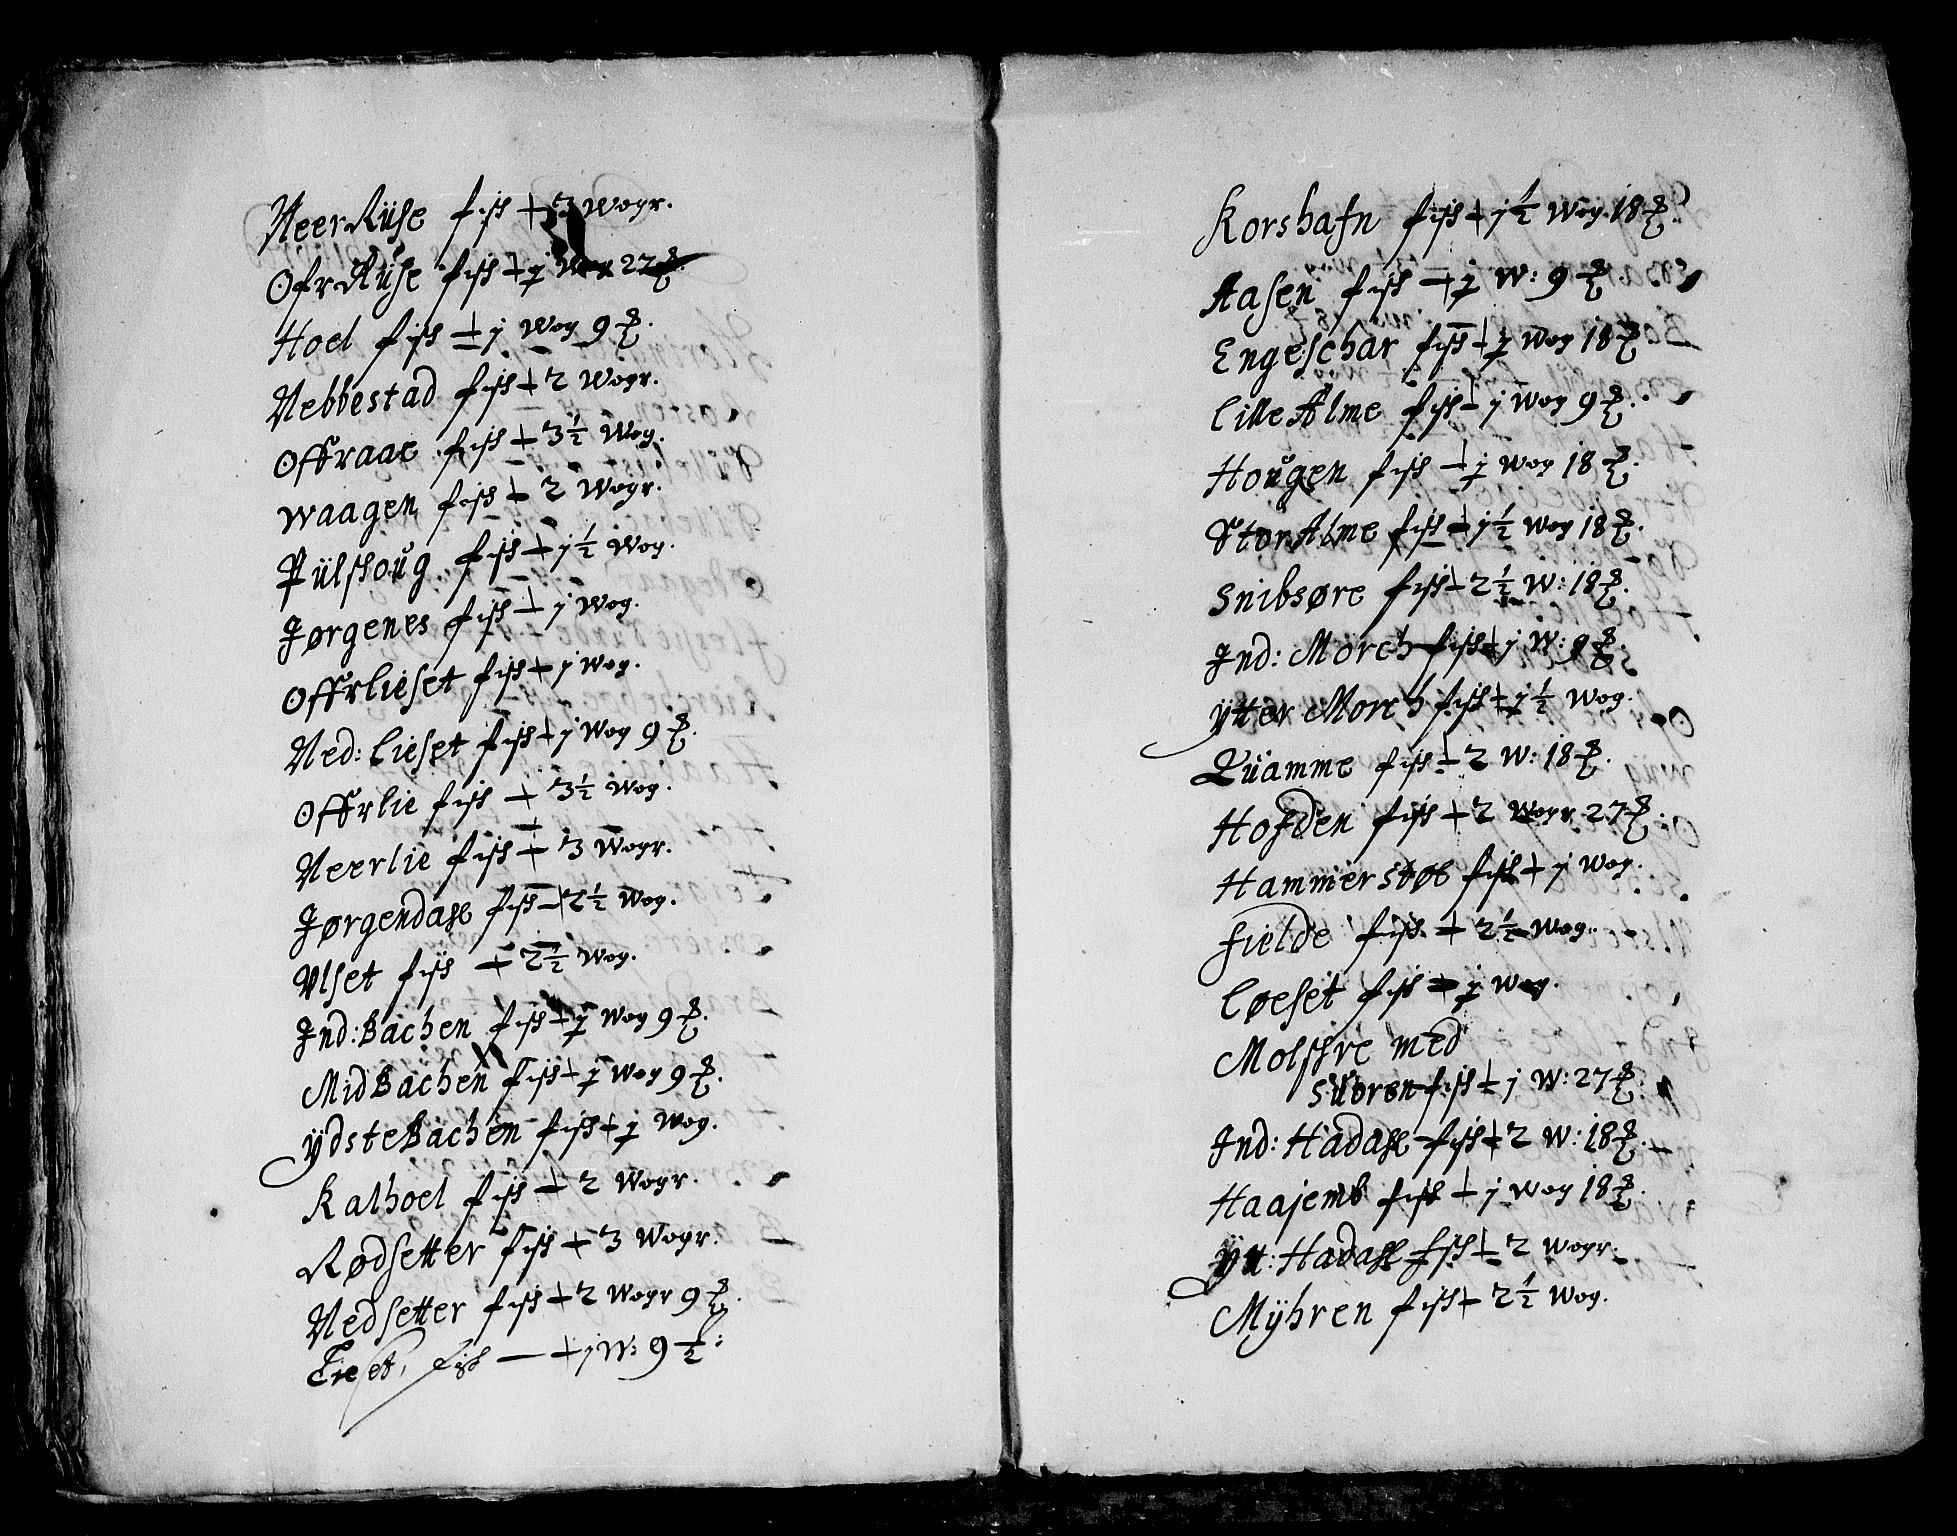 NeerRüse fisk + 3 Wogr.
OfrRüse fisk + j Wog 27 ℔.
Hoel fisk + j Wog 9 ℔.
Nebbestad fisk + 2 Wogr.
Offraae fisk + 3½ Wog.
Waagen fisk + 2 Wogr.
Pülshoug fisk + j½ Wog.
Jørgenes fisk + j Wog.
Offrlieset fisk + j Wog.
Ned: Lieset fisk + j Wog 9 ℔.
Offrlie fisk + 3½ Wog.
Neerlie fisk + 3 Wogr.
Jørgendahl fisk + 2½ Wog.
Ulset fisk + 2½ Wog.
Ind: Bachen fisk + j Wog 9 ℔.
MidBachen fisk + j Wog 9 ℔.
YdsteBachen fisk + j Wog.
Kalhoel fisk + 2 Wogr.
Rødsetter fisk + 3 Wogr.
Nedsetter fisk + 2 Wogr 9 ℔.
fisk — + j W: 9
Korshafn fisk + j½ Wog. 18 ℔.
Aasen fisk + j W: 9 ℔.
Engeschar fisk + j Wog 18 ℔
Lille Alme fisk + j Wog 9 ℔.
Hougen fisk + j Wog 18 ℔.
Stor Alme fisk + j½ Wog 18 ℔.
Snibsøre fisk + 2½ W: 18 ℔.
Ind: Morch fisk + j W: 9 ℔.
Ytter Morch fisk + j½ Wog.
Qüamme fisk + 2 W: 18 ℔.
Hofden fisk + 2 Wogr 27 ℔.
Hammerstøb fisk + j Wog.
Fielde fisk + 2½ Wog.
Løeset fisk + j Wog.
Molschre med
Süoren fisk + j W: 27 ℔.
Ind: Hadahl fisk + 2 W: 18 ℔.
Haajemb fisk + j Wog 18 ℔.
Ytt: Hadahl fisk + 2 Wogr.
Myhren fisk + 2½ Wog.